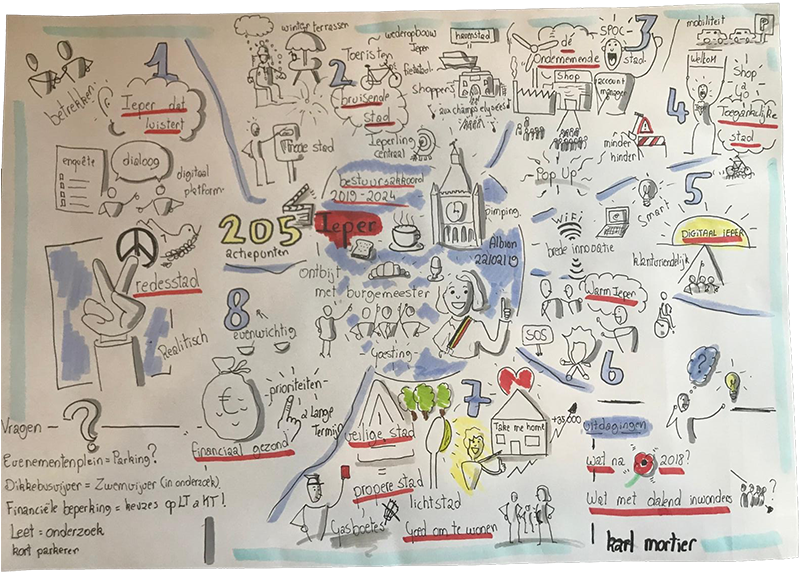 betrekken
1
Ieper dat
luistert
enquête
dialoog
digitaal
platform
winterterrassen
2
Toeristen
bruisende
stad
wederopbouw
Ieper
fietslabel
shoppers
aux champs elysées
Ieperling
centraal
Trede stad
haarnstad
de
Ondernemende
stad
SPOC
3
Shop
account
manager
Pop Up
minder
hinder
mobiliteit
P
4
WELKOM
Shop
&
Go
Toegankelijke
stad
bestuursakkoord
2019-2024
205
actiepunten
Ieper
pimping
Albion
22/02/19
ontbijt
met burgemeester
Goesting
WiFi
brede innovatie
Smart
5
DiGiTAAL IEPER
klantvriendelijk
Warm Ieper
SOS
6
Vredesstad
Realistisch
8
evenwichtig
€
financiaal gezond
prioriteiten
2 Lange
Termijn
Vragen
?
Evenementenplein = Parking?
Dikkebusvijver = Zwemvijver (in onderzoek).
Financiële beperking = keuzes op LT & KT!
Leet = onderzoek
kort parkeren
7
veilige stad
=
propere stad
lichtstad
Gasboetes
Goed om te wonen
Take me home
+35.000
uitdagingen
Wat na 2018?
Wat met dalend inwoners
?
karl mortier